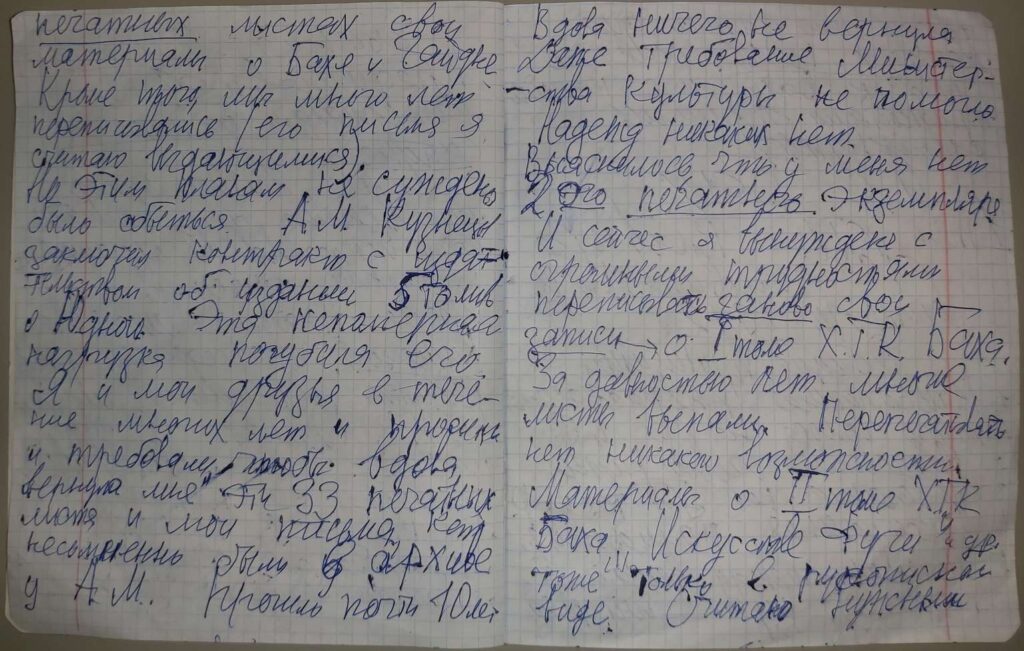 печатных листах свои
материалы о Бахе и Гайдне
Кроме того, мы много лет
переписывались (его письма я
считаю выдающимися).
Но этим планам не суждено
было сбыться. А.М. Кузнецов
заключил контракт с издат
об издании 5 томов
о Юдиной. Эта непомерная
нагрузка погубила его.
Я и мои друзья в тече-
ние многих лет и просили
и требовали, чтобы вдова
вернула мне эти 33 печатных
листа и мои письма, кот
несомненно были в архиве
у А.М. Прошло почти 10 лет
Вдова ничего не вернула
Даже требование Министер-
ства культуры не помогло.
Надежд никаких нет.
Выяснилось, что у меня нет
2ого печатного экземпляра
И сейчас я вынуждена с
огромными трудностями
переписывать заново свои
записи о I томе Х.Т.К. Баха.
За давностью лет многие
листы выпали. Перепечатывать
нет никакой возможности.
Материалы о II томе ХТК
Баха, Искусстве Фуги и др.
тоже только в рукописном
виде. Считаю нужным